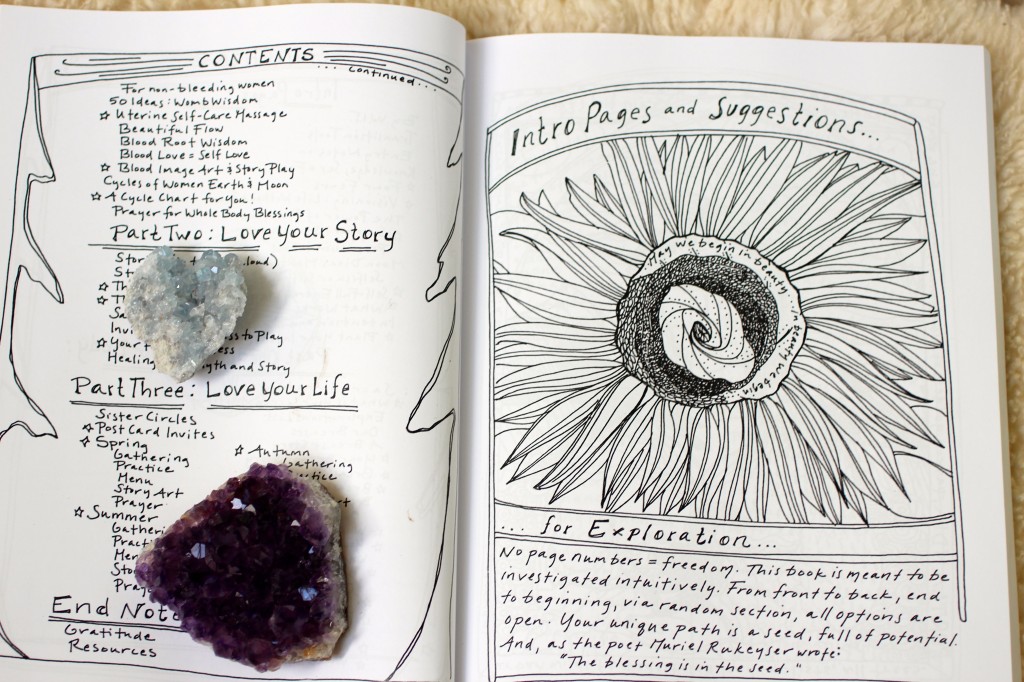 CONTENTS
... continued...
For non-bleeding women
50 Ideas: Womb Wisdom
☆ Uterine Self-Care Massage
Beautiful Flow
Blood Root Wisdom
Blood Love = Self Love
☆ Blood Image Art & Story Play
Cycles of Women Earth & Moon
☆ A Cycle Chart for You!
Prayer for Whole Body Blessings
Part Two: Love Your Story
☆
☆
to Play
☆ Your
Healing and Story
Part Three: Love Your Life
Sister Circles
☆ Post Card Invites
☆ Spring
Gathering
Practice
Menu
Story Art
Prayer
☆ Summer
☆ Autumn
Gathering
End
Gratitude
Resources
Intro Pages and Suggestions...
May we begin in beauty
in beauty we begin
... for Exploration...
No page numbers = freedom. This book is meant to be
investigated intuitively. From front to back, end
to beginning, via random section, all options are
open. Your unique path is a seed, full of potential.
And, as the poet Muriel Rukeyser wrote:
"The blessing is in the seed."